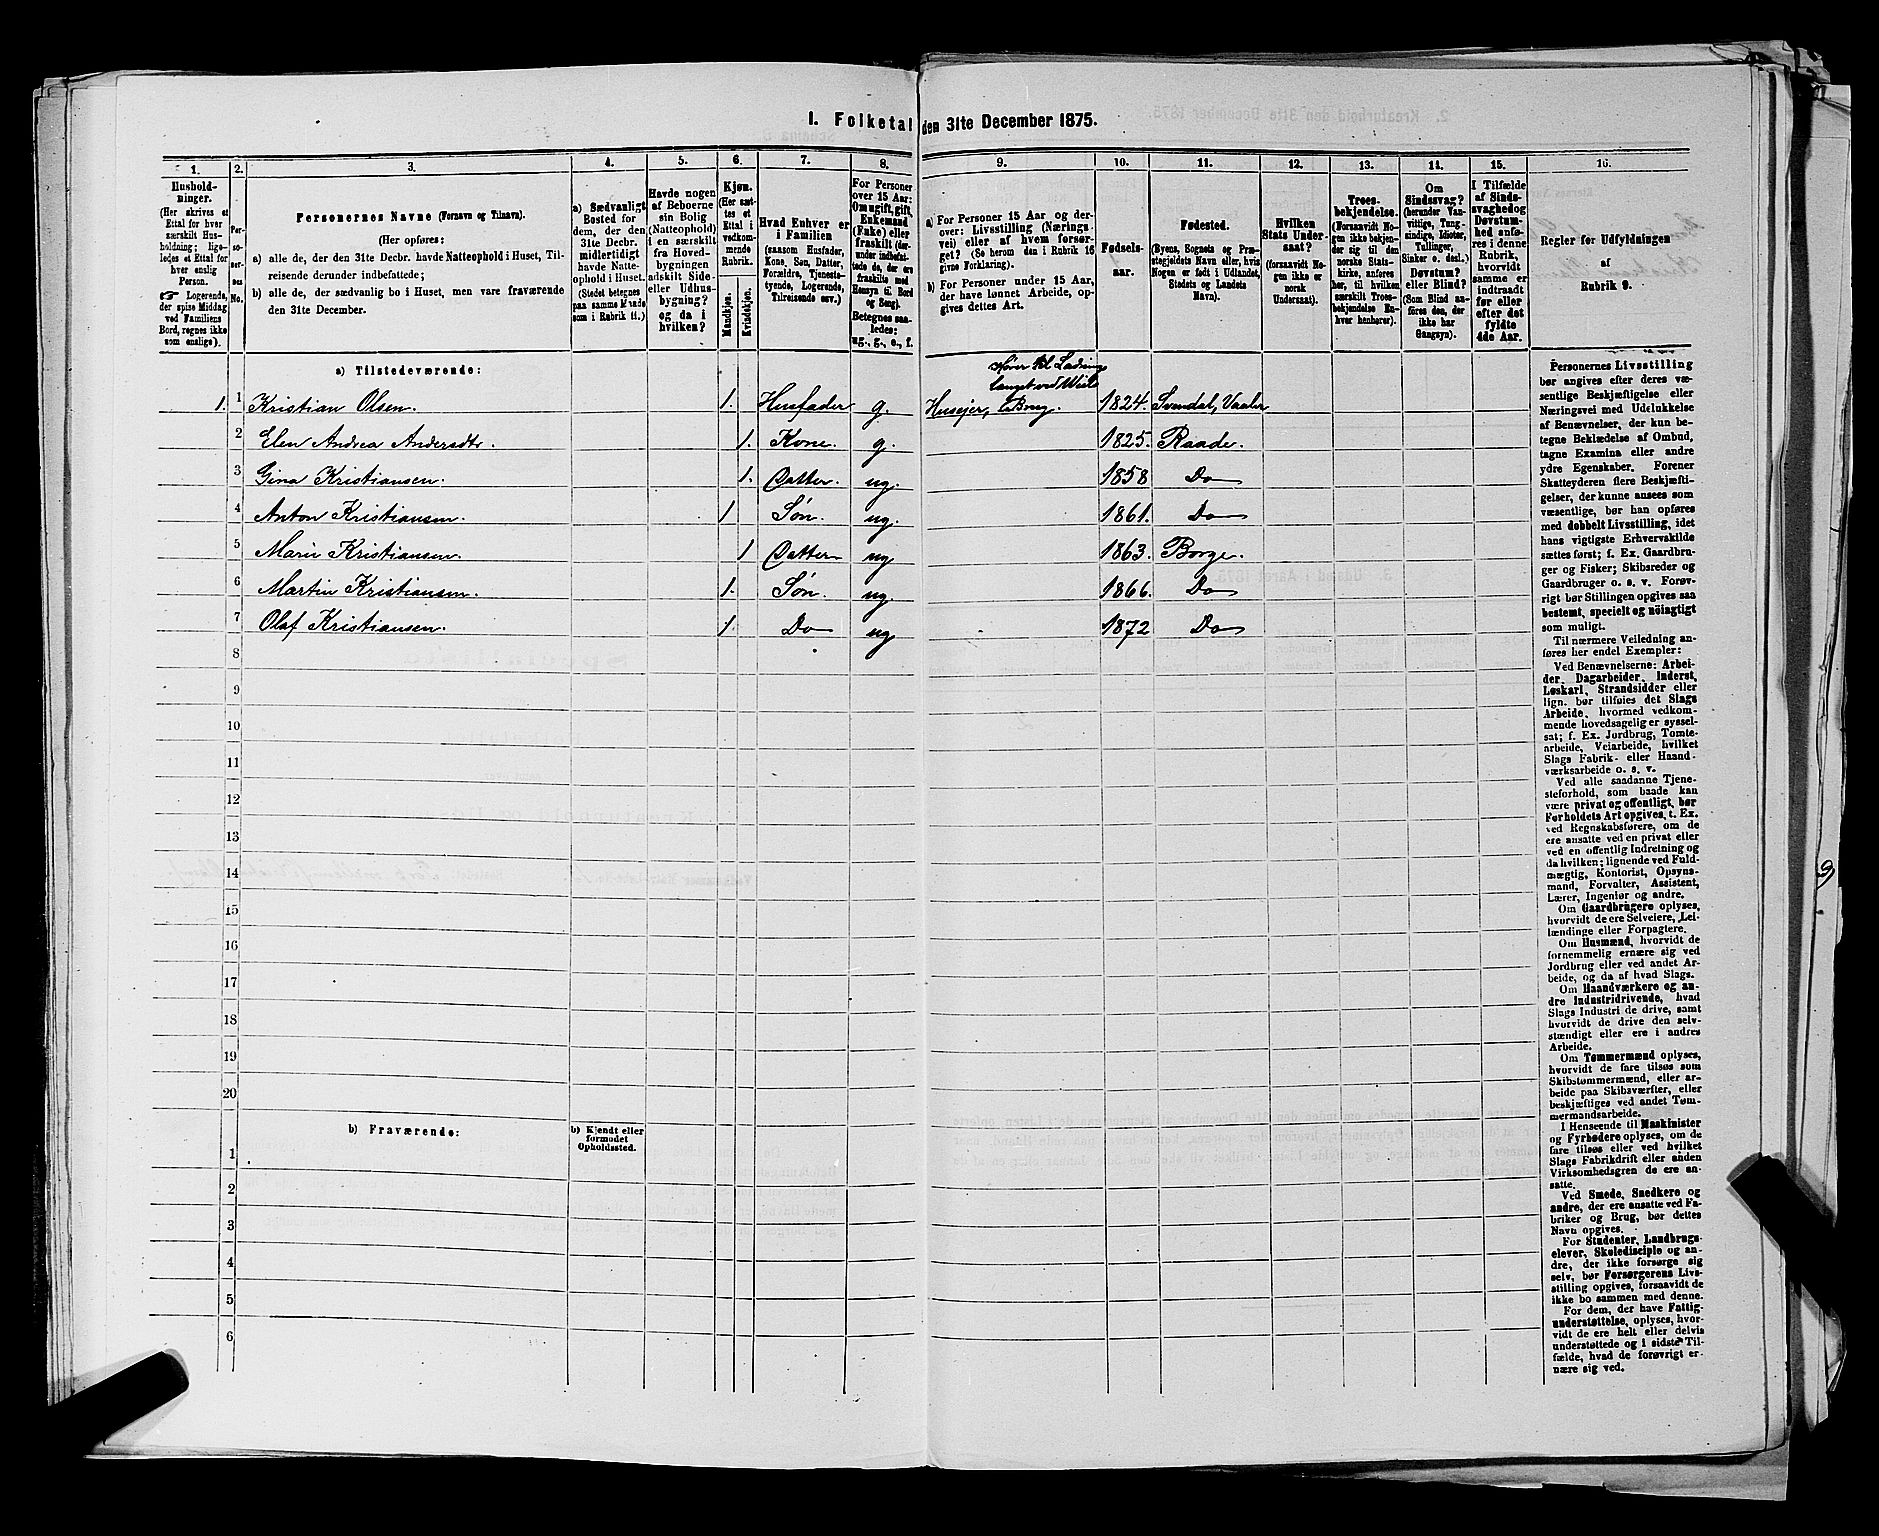 1. Folketal den 31te December 1875.
1. 2. 3. 4. 5. 6. 7. 8. 9. 10. 11. 12. 13. 14. 15. 16.
Hushold-
ninger.
(Her skrives et
Ettal for hver
særskilt Hus-
holdning; lige-
ledes et Ettal for
hver enslig
Person.
☞ Logerende,
der spise Middag
ved Familiens
Bord, regnes ikke
som enslige).
Per-
so-
ner-
nes
No.
Personernes Navne (Fornavn og Tilnavn).
(Her opføres:
a) alle de, der den 31te Decbr. havde Natteophold i Huset, Til-
reisende derunder indbefattede;
b) alle de, der sædvanlig bo i Huset, men vare fraværende
den 31te December.
a) Sædvanligt
Bosted for
dem, der den
31te Decbr.
midlertidigt
havde Natte-
ophold i Huset.
(Stedet betegnes
paa samme Maade
som i Rubrik 11.)
Havde nogen
af Beboerne
sin Bolig
(Natteophold)
i en særskilt
fra Hoved-
bygningen
adskilt Side-
eller Udhus-
bygning?
og da i
hvilken?
Kjøn.
(Her sæt-
tes et
Ettal i
vedkom-
mende
Rubrik.
Mandkjøn.
Kvindekjøn.
Hvad Enhver er
i Familien
(saasom Husfader,
Kone, Søn, Datter,
Forældre, Tjeneste-
tyende, Logerende,
Tilreisende osv.)
For Personer
over 15 Aar:
Om ugift, gift,
Enkemand
(Enke) eller
fraskilt (der-
under indbefat-
tede de, der ere
fraskilte med
Hensyn til Bord
og Seng).
Betegnes saa-
ledes:
ug., g., e., f.
a) For Personer 15 Aar og der-
over: Livsstilling (Nærings-
vei) eller af hvem forsør-
get? (Se herom den i Rubrik 16
givne Forklaring).
b) For Personer under 15 Aar,
der have lønnet Arbeide, op-
gives dettes Art.
Fødsels-
aar.
Fødested.
(Byens, Sognets og Præ-
stegjeldets Navn eller, hvis
Nogen er født i Udlandet,
Stedets og Landets
Navn).
Hvilken
Stats Under-
saat?
(forsaavidt No-
gen ikke er
norsk
Undersaat).
Troes-
bekjendelse.
(Forsaavidt No-
gen ikke bekjen-
der sig til den
norske Stats-
kirke, anføres
her, til hvilken
særskilt Troes-
bekjendelse En-
hver henhører).
Om
Sindssvag?
(herunder Van-
vittige, Tung-
sindige, Idioter,
Tullinger,
Sinker o. desl.)
Døvstum?
eller Blind?
(Som Blind an-
føres den, der
ikke har
Gangsyn).
I Tilfælde
af Sinds-
svaghed og
Døvstum-
hed anfø-
res i denne
Rubrik,
hvorvidt
samme er
indtraadt
før eller
efter det
fyldte
4de Aar.
Regler for Udfyldningen
af
Rubrik 9.
a) Tilstedeværende:
1. 1 Kristian Olsen. 1. Husfader g. Husejer, 1824. Svindal, Vaaler
2 Elen Andrea Andersdtr. 1. Kone. g. 1825. Raade.
3 Gina Kristiansen. 1. Datter. ug. 1858 Do
4 Anton Kristiansen. 1 Søn. ug. 1861. Do
5 Marie Kristiansen. 1 Datter ug 1863. Borge.
6 Martin Kristiansen. 1. Søn. ug. 1866. Do
7 Olaf Kristiansen. 1. Do ug 1872 Do
8
9
10
11
12
13
14
15
16
17
18
19
20
b) Fraværende:
b) Kjendt eller
formodet
Opholdssted.
1
2
3
4
5
6
Personernes Livsstilling
bør angives efter deres væ-
sentlige Beskjæftigelse eller
Næringsvei med Udelukkelse
af Benævnelser, der kun be-
tegne Beklædelse af Ombud,
tagne Examina eller andre
ydre Egenskaber. Forener
Skatteyderen flere Beskjæfti-
gelser, der kunne ansees som
væsentlige, bør han opføres
med dobbelt Livsstilling, idet
hans vigtigste Erhvervskilde
sættes først; f. Ex. Gaardbru-
ger og Fisker; Skibsreder og
Gaardbruger o. s. v. Forøv-
rigt bør Stillingen opgives saa
bestemt, specielt og nöiagtigt
som muligt.
Til nærmere Veiledning an-
føres her endel Exempler:
Ved Benævnelserne: Arbei-
der, Dagarbeider, Inderst,
Løskarl, Strandsidder eller
lign. bør tilføies det Slags
Arbeide, hvormed vedkom-
mende hovedsagelig er syssel-
sat; f. Ex. Jordbrug, Tomte-
arbeide, Veiarbeide, hvilket
Slags Fabrik- eller Haand-
værksarbeide o. s. v.
Ved alle saadanne Tjene-
steforhold, som baade kan
være privat og offentligt, bør
Forholdets Art opgives, t. Ex.
ved Regnskabsførere, om de
ere ansatte ved en privat eller
ved en offentlig Indretning og
da hvilken; lignende ved Fuld-
mægtig, Kontorist, Opsyns-
mand, Forvalter, Assistent,
Lærer, Ingeniør og andre.
Om Gaardbrugere oplyses,
hvorvidt de ere Selveiere, Lei-
lændinge eller Forpagtere.
Om Husmænd, hvorvidt de
fornemmelig ernære sig ved
Jordbrug eller ved andet Ar-
beide, og da af hvad Slags.
Om Haandværkere og an-
dre Industridrivende, hvad
Slags Industri de drive, samt
hvorvidt de drive den selv-
stændigt eller ere i andres
Arbeide.
Om Tømmermænd oplyses,
hvorvidt de fare tilsøs som
Skibstømmermænd, eller ar-
beide paa Skibsværfter, eller
beskjæftiges ved andet Tøm-
mermandsarbeide.
I Henseende til Maskinister
og Fyrbødere oplyses, om de
fare tilsøs eller ved hvilket
Slags Fabrikdrift eller anden
Virksomhedsgren de ere an-
satte.
Ved Smede, Snedkere og
andre, der ere ansatte ved Fa-
briker og Brug, bør dettes
Navn opgives.
For Studenter, Landbrugs-
elever, Skoledisciple og an-
dre, der ikke forsørge sig
selv, bør Forsørgerens Livs-
stilling opgives, forsaavidt de
ikke bo sammen med denne.
For dem, der have Fattig-
understøttelse, oplyses, hvor-
vidt de ere helt eller delvis
understøttede og i sidste Til-
fælde, hvad de forøvrigt er-
nære sig ved.